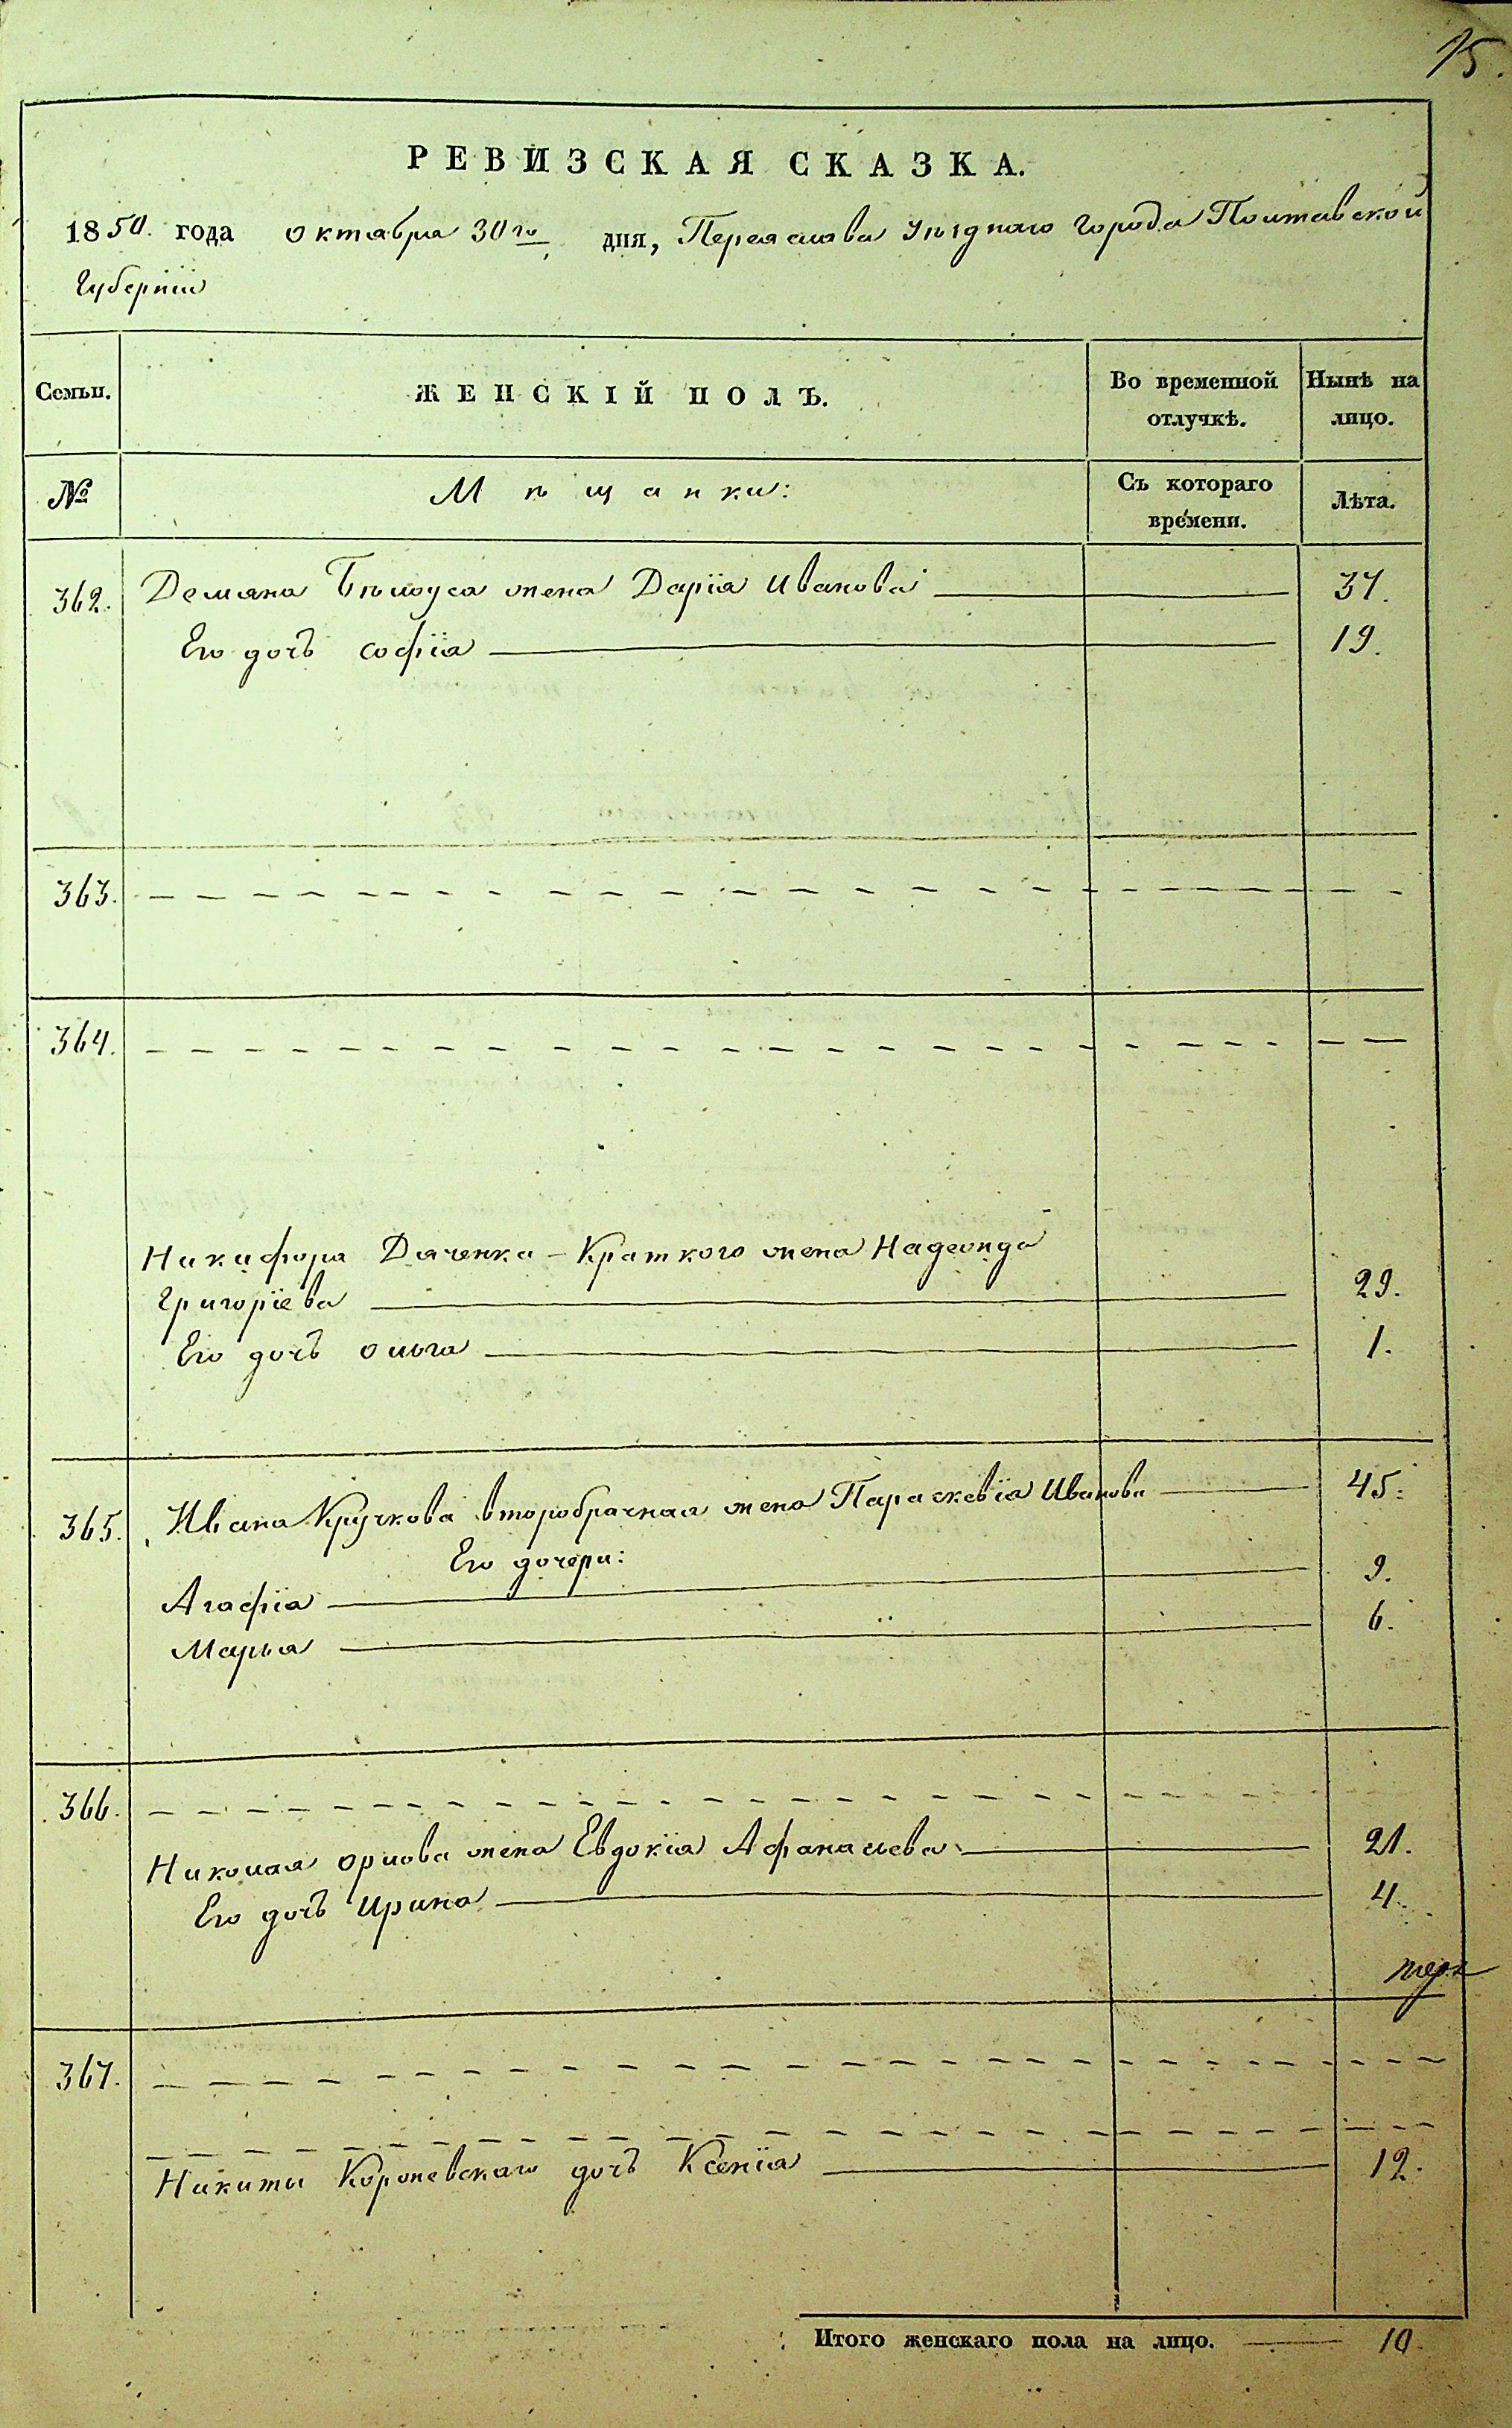 15.
РЕВИЗСКАЯ СКАЗКА.
1850. года октября 30го дня, Переяслава уѣзднаго города Полтавской
Губерніи
Семьи. ЖЕНСКІЙ ПОЛЪ. Во временной отлучкѣ. Нынѣ на лицо.
№ Мѣщанки: Съ котораго времени. Лѣта.
362. Демяна Бѣлоуса жена Дарія Иванова 37.
Его дочь Софія 19.
363.
364.
Никифора Дяченка-Краткого жена Надежда
Григоріева 29.
Его дочь Ольга 1.
365. Ивана Кручкова второбрачная жена Параскевія Иванова 45.
Его дочери:
Агафія 9.
Марья 6.
366.
Николая Орлова жена Евдокія Афанасьева 21.
Его дочь Ирина 4.
367.
Никиты Королевскаго дочь Ксенія 12.
Итого женскаго пола на лицо. 10.